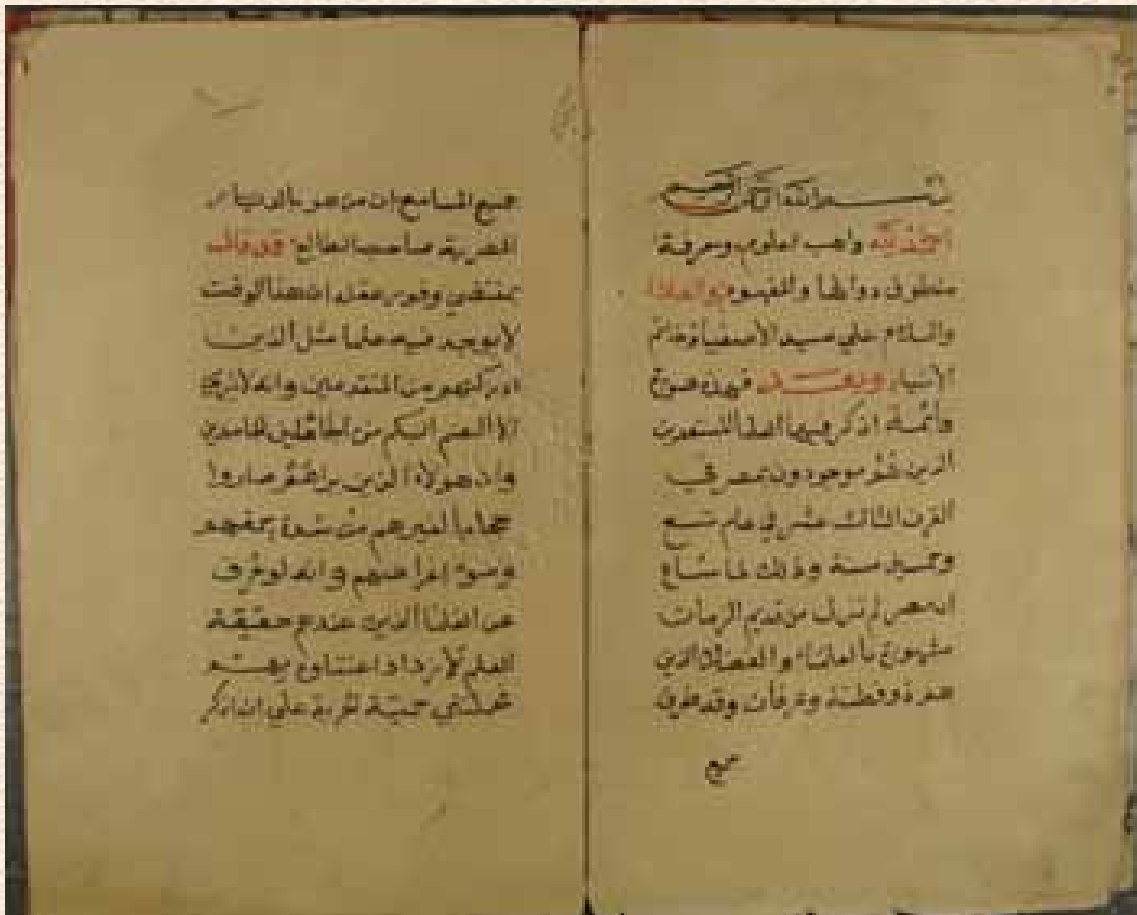 بسم الله الرحمن الرحيم
الحمد لله واهب العلوم ومعرفة
منطوق دوالها والمفهوم والصلاة
والسلام علي سيد الأصفياء وخاتم
الأنبياء وبعد فهذه صورة
قائمة اذكر فيها العلما المستعدين
الذين هم موجودون بمصر في
القرن الثالث عشر في عام تسع
وخمسين سنة وذلك لما شاع
ان مصر لم تزل من قديم الزمان
مشهورة بالعلماء والفضلاء الذي
وفطنة وعرفان وقد طرق
جميع
جميع المسامع ان من هو بالديار
المصرية صاحب الطالع قد قال
بمقتضي وفور عقله ان هذا الوقت
لا يوجد فيه علما مثل الذين
ادركتهم من المتقدمين وانه لا
الصم البكم من الجاهلين الجامدين
وان هولاء الذين يراهم صاروا
حجابا لغيرهم من شدة بغضهم
وسوء اغراضهم وانه لو عرف
عن العلما الذين عندهم حقيقة
العلم لازداد اعتناوه بهم
فحملتني حمية علي ان اذكر